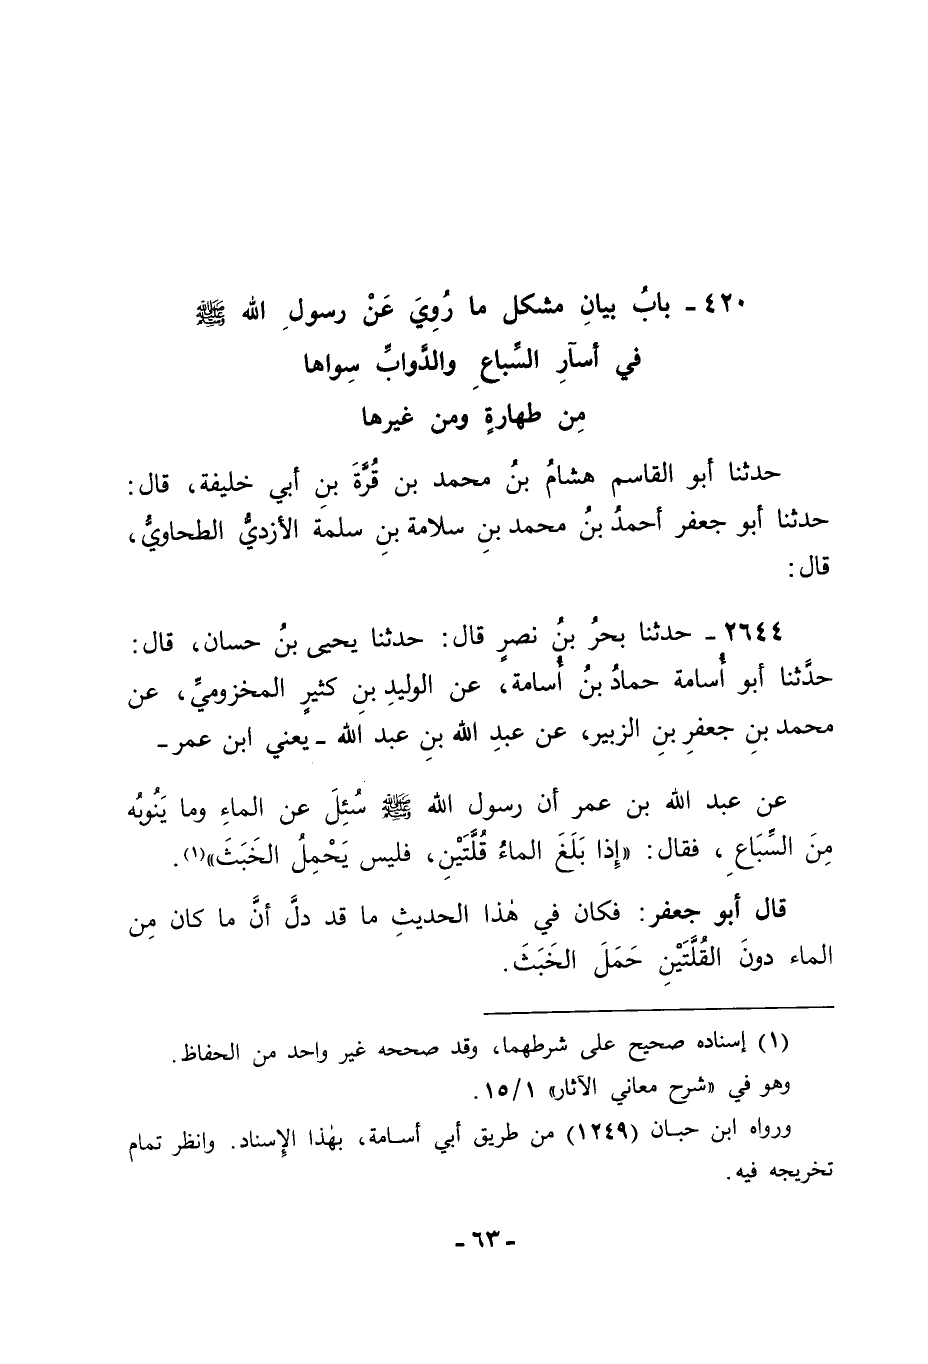 ٤٢٠ ـ بابُ بيانِ مشكل ما رُوِيَ عَنْ رسولِ الله ﷺ
في أسآرِ السِّباعِ والدَّوابِّ سِواها
مِن طهارةٍ ومن غيرها
حدثنا أبو القاسم هشامُ بنُ محمد بن قُرَّةَ بنِ أبي خليفة، قال:
حدثنا أبو جعفر أحمدُ بنُ محمد بنِ سلامة بنِ سلمة الأزديُّ الطحاويُّ،
قال:
٢٦٤٤ ـ حدثنا بحرُ بنُ نصرٍ قال: حدثنا يحيى بنُ حسان، قال:
حدَّثنا أبو أُسامة حمادُ بنُ أُسامة، عن الوليدِ بنِ كثيرٍ المخزوميِّ، عن
محمد بنِ جعفرِ بنِ الزبير، عن عبدِ الله بنِ عبد الله ـ يعني ابن عمر ـ
عن عبد الله بن عمر أن رسول الله ﷺ سُئِلَ عن الماءِ وما يَنُوبُه
مِنَ السِّبَاعِ، فقال: «إِذا بَلَغَ الماءُ قُلَّتَيْنِ، فليس يَحْمِلُ الخَبَثَ»(١).
قال أبو جعفر: فكان في هٰذا الحديثِ ما قد دلَّ أنَّ ما كان مِن
الماء دونَ القُلَّتَيْنِ حَمَلَ الخَبَثَ.
(١) إسناده صحيح على شرطهما، وقد صححه غير واحد من الحفاظ.
وهو في «شرح معاني الآثار» ١٥/١.
ورواه ابن حبـان (١٢٤٩) من طريق أبي أسـامة، بهٰذا الإِسناد. وانظر تمام
تخريجه فيه.
ـ ٦٣ ـ